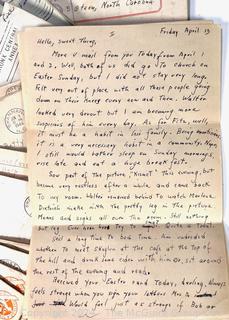 Easton, North Carolina
Friday April 13
Hello, Sweet Thing,
More V mail from you Today, from April
and 2. Well, both of us did go To church on
Easter Sunday, but I did not stay very long.
Felt very out of place with all those people going
down on Their Knees every now and Then. Walter
looked very devout but I am becoming more
suspicious of him every day. As for Fitz, well,
it must be a habit in his family. Being
it is a very necessary habit in a community. Nope,
I still would rather sleep on Sunday mornings,
rise late and eat a huge breakfast.
Saw part of the picture "Kismet" this evening, but
became very restless after a while and came back
To my room. Walter remained behind To watch Marlene
Dietrich make with The pretty leg in The picture.
Moans and sighs all over The room. Still nothing
but leg. Ever hear Try to Quite a Today!
Isn't a long Time To bed time. Am undecided
whether To meet Skyler at The cafe at the Top of
the hill and drink some cider with him or, sit around
the rest of the evening and read.
Received your Easter card Today, darling. Always
feels strange when you sign your letters Mrs. to
Would be just as strange if Bob or